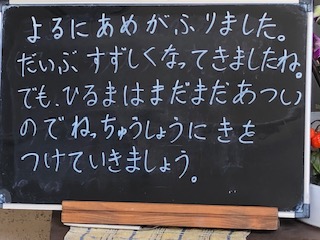 よるにあめがふりました。
だいぶすずしくなってきましたね。
でも、ひるまはまだまだあつい
のでねっちゅうしょうにきを
つけていきましょう。